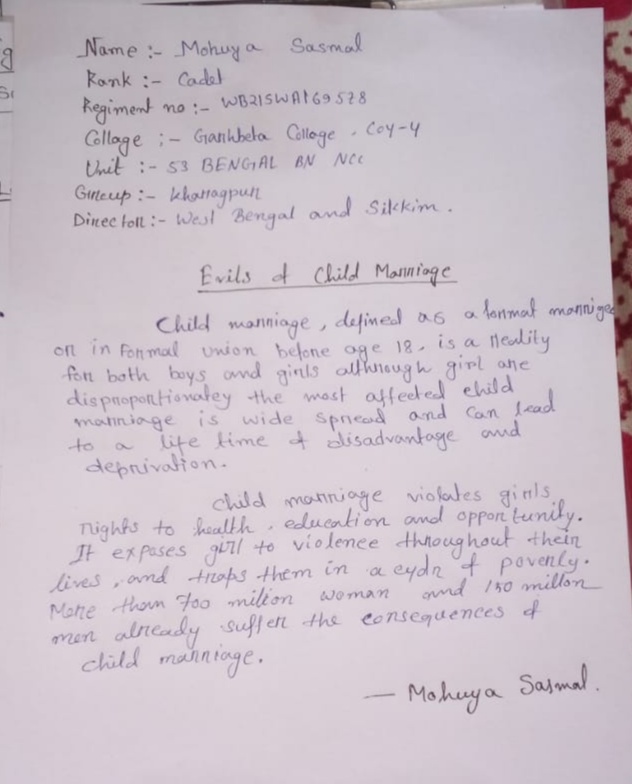 Name :- Mohuya Sasmal
Rank :- Cadet
Regiment no :- WB21SWA169578
Collage :- Garhbeta College, Coy-4
Unit :- 53 BENGAL BN NCC
Group :- Kharagpur
Director :- West Bengal and Sikkim.
Evils of Child Marriage
Child marriage, defined as a formal marriged
or in formal union before age 18, is a reality
for both boys and girls althrough girl are
disproportionatey the most affected child
marriage is wide spread and can lead
to a life time of disadvantage and
deprivation.
Child marriage violates girls
rights to health, education and opportunity.
It exposes girl to violence throughout their
lives, and traps them in a of poverly.
More than 700 million woman and 150 millon
men already suffer the consequences of
child marriage.
— Mohuya Sasmal.